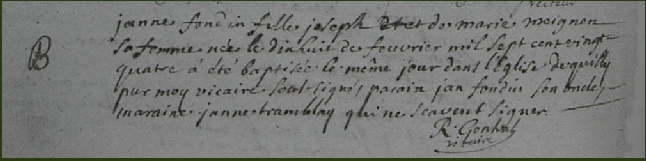 B
janne fondin fille joseph et de marie meignen
sa femme née le dixhuit de feuvrier mil sept cent vingt
quatre á été baptisée le même jour dans l'Eglise de quilly
par moy vicaire soussigné parain jan fondin son oncle
maraine janne tramblay qui ne scavent signer
vicaire